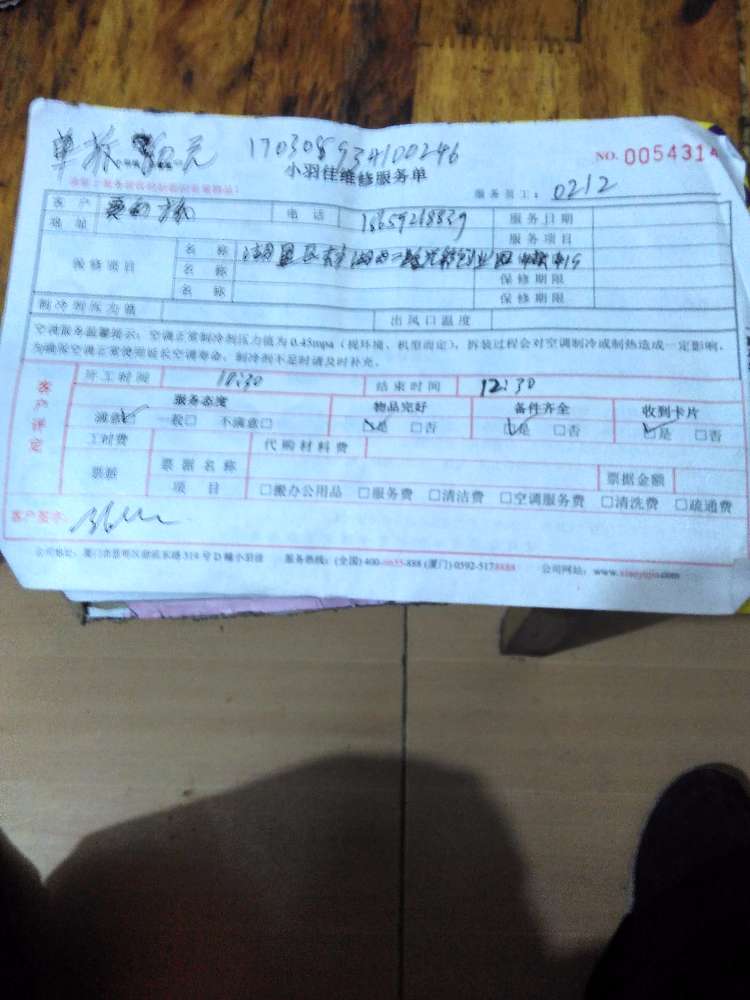 单拆 元 170308934100246
小羽佳维修服务单 NO. 0054314
服务员工: 0212
客户 电话 服务日期
地址 服务项目
报修项目 名称
名称 保修期限
名称 保修期限
制冷剂压力值 出风口温度
空调服务温馨提示:空调正常制冷剂压力值为0.45mpa(视环境、机型而定),拆装过程会对空调制冷或制热造成一定影响,
为确保空调正常使用延长空调寿命,制冷剂不足时请及时补充。
客户评定
开工时间 10:30 结束时间 12:30
服务态度 物品完好 备件齐全 收到卡片
满意□ 一般□ 不满意□ □是 □否 □是 □否 □是 □否
工时费 代购材料费
票据 票据名称 票据金额
项目 □搬办公用品 □服务费 □清洁费 □空调服务费 □清洗费 □疏通费
客户签字:
公司地址:厦门市思明区 319号D幢小羽佳 服务热线:(全国)400-8855-888 (厦门)0592-5178888 公司网站:www.xiaoyujia.com